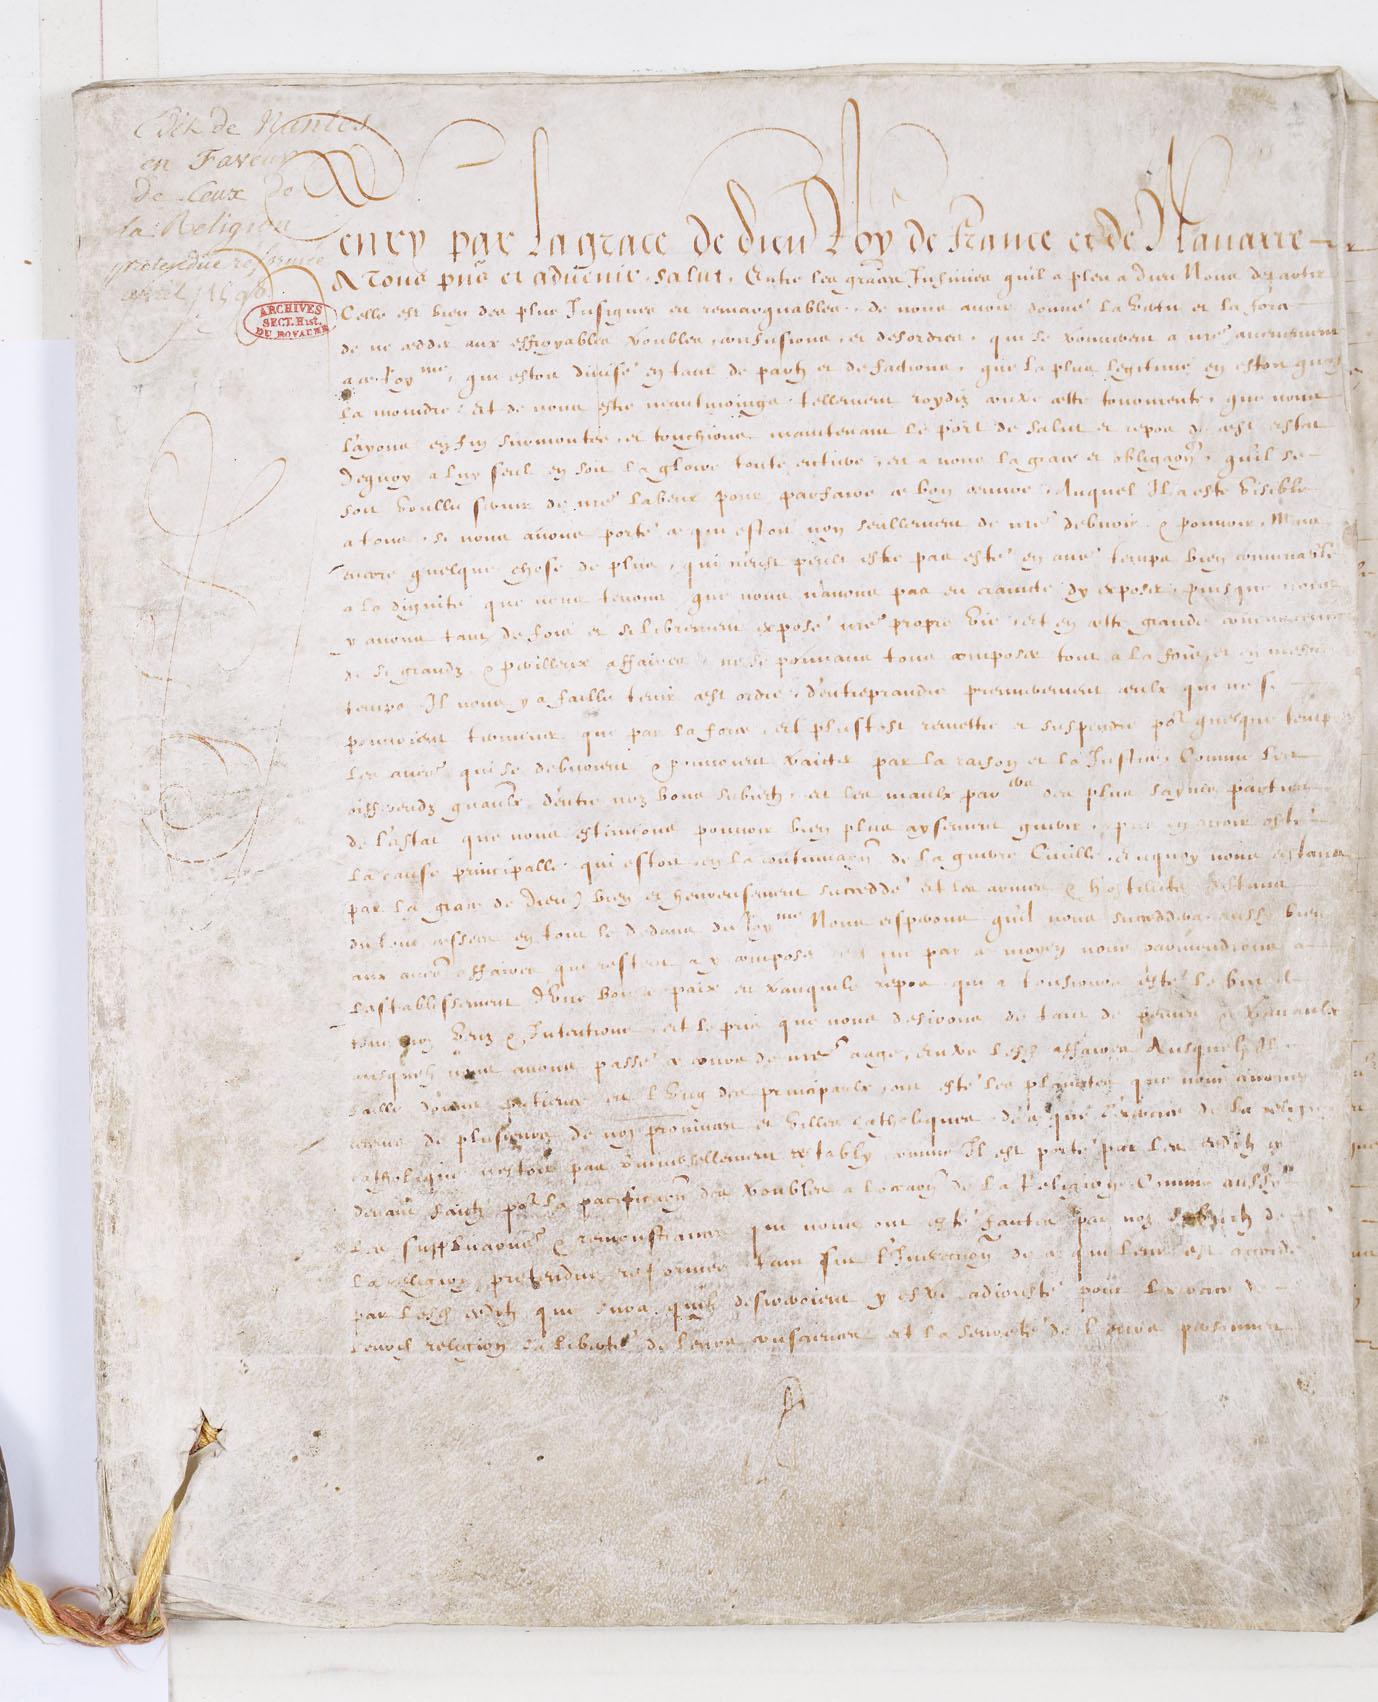 Edit de Nantes
en Faveur
de Ceux de
la Religion
pretendüe réformée
avril 1598
ARCHIVES
SECT. Hist.
DU ROYAUME
Henry par la grace de dieu Roy de France et de Nauarre
A Tous pñs et aduenir, salut, Entre les graces Infinies quil a pleu a dieu Nous departir
Celle est bien des plus Insignes et remarquables, de nous auoir donné la vertu et la force
de ne cedder aux effroyables troubles, confusions, et desordres, qui se trouuerent a nr̃e aduenement
a ce Royme, qui estoit diuisé en tant de partz et de factions, que la plus legitime en estoit quasi
la moindre, Et de nous estre neantmoings tellement roydiz contre ceste tourmente, que nous
layons en fin surmontée, et touchions maintenant le port de salut et repos de cest estat
Dequoy a luy seul en soit la gloire toute entiere, et a nous la grace et obligaõn, quil se
soit voullu seruir de nr̃e labeur pour parfaire ce bon oeuure, Auquel Il a esté visible
a tous, si nous auons porté ce qui estoit non seullement de nr̃e debuoir & pouuoir, Mais
encore quelque chose de plus, qui neust peult estre pas esté en autre temps bien conuenable
a la dignité que nous tenons, que nous nauons pas eu craincte dy exposer, puisque nous
y auons tant de fois et si librement exposé nr̃e propre vie, Et en ceste grande concurrence
de si grandz & perilleux affaires, ne se pouuans tous composer tout a la fois, et en mesme
temps Il nous y a faillu tenir cest ordre, dentreprandre premierement ceulx qui ne se
pouuoient terminer que par la force, et plustost remettre et suspendre pour quelque temps
les autres qui se debuoient & pouuoient traicter par la raison et la Justice, Comme les
differendz generaulx dentre noz bons subiectz, et les maulx par~~ des plus saynes parties
de lestat que nous estimions pouuoir bien plus aysement guerir, apres en auoir osté
la cause principalle, qui estoit en la continuaõn de la guerre Ciuille, Enquoy nous estant
par la grace de Dieu) bien et heureusement succeddé et les armes & hostilitez estans
du tout cessées en tout le dedans du Royme Nous esperons quil nous succeddera aussy bien
aux autres affaires qui restent a y composer et que par ce moyen nous paruiendrons a
lestablissement dune bonne paix et tranquile repos qui a tousiours esté le but de
tous noz veuz & Intentions, et le pris que nous desirons de tant de peines & trauaulx
ausquelz nous auons passé ce cours de nr̃e aage, Entre lesd affaires Ausquelz Il a
faillu donner patience et lvng des principaulx, ont esté les plainctes que nous auons
receues de plusieurs de noz prouinces et villes catholiques, de ce que lexercice de la religion
catholique nestoit pas vniuersellement restably comme Il est porté par les edictz cy
deuant faictz pour la pacificaõn des troubles a loccaõn de la Religion, Comme aussy
les supplicaõns & remonstrances qui nous ont esté faictes par noz subiectz de
la religion pretendue reformee, tant sur lInexecuõn de ce qui leur est accordé
par lesd edictz que sur ce quilz desireroient y estre adiousté pour lexercice de
leurd religion la liberté de leurs consciences et la seureté de leurs personnes